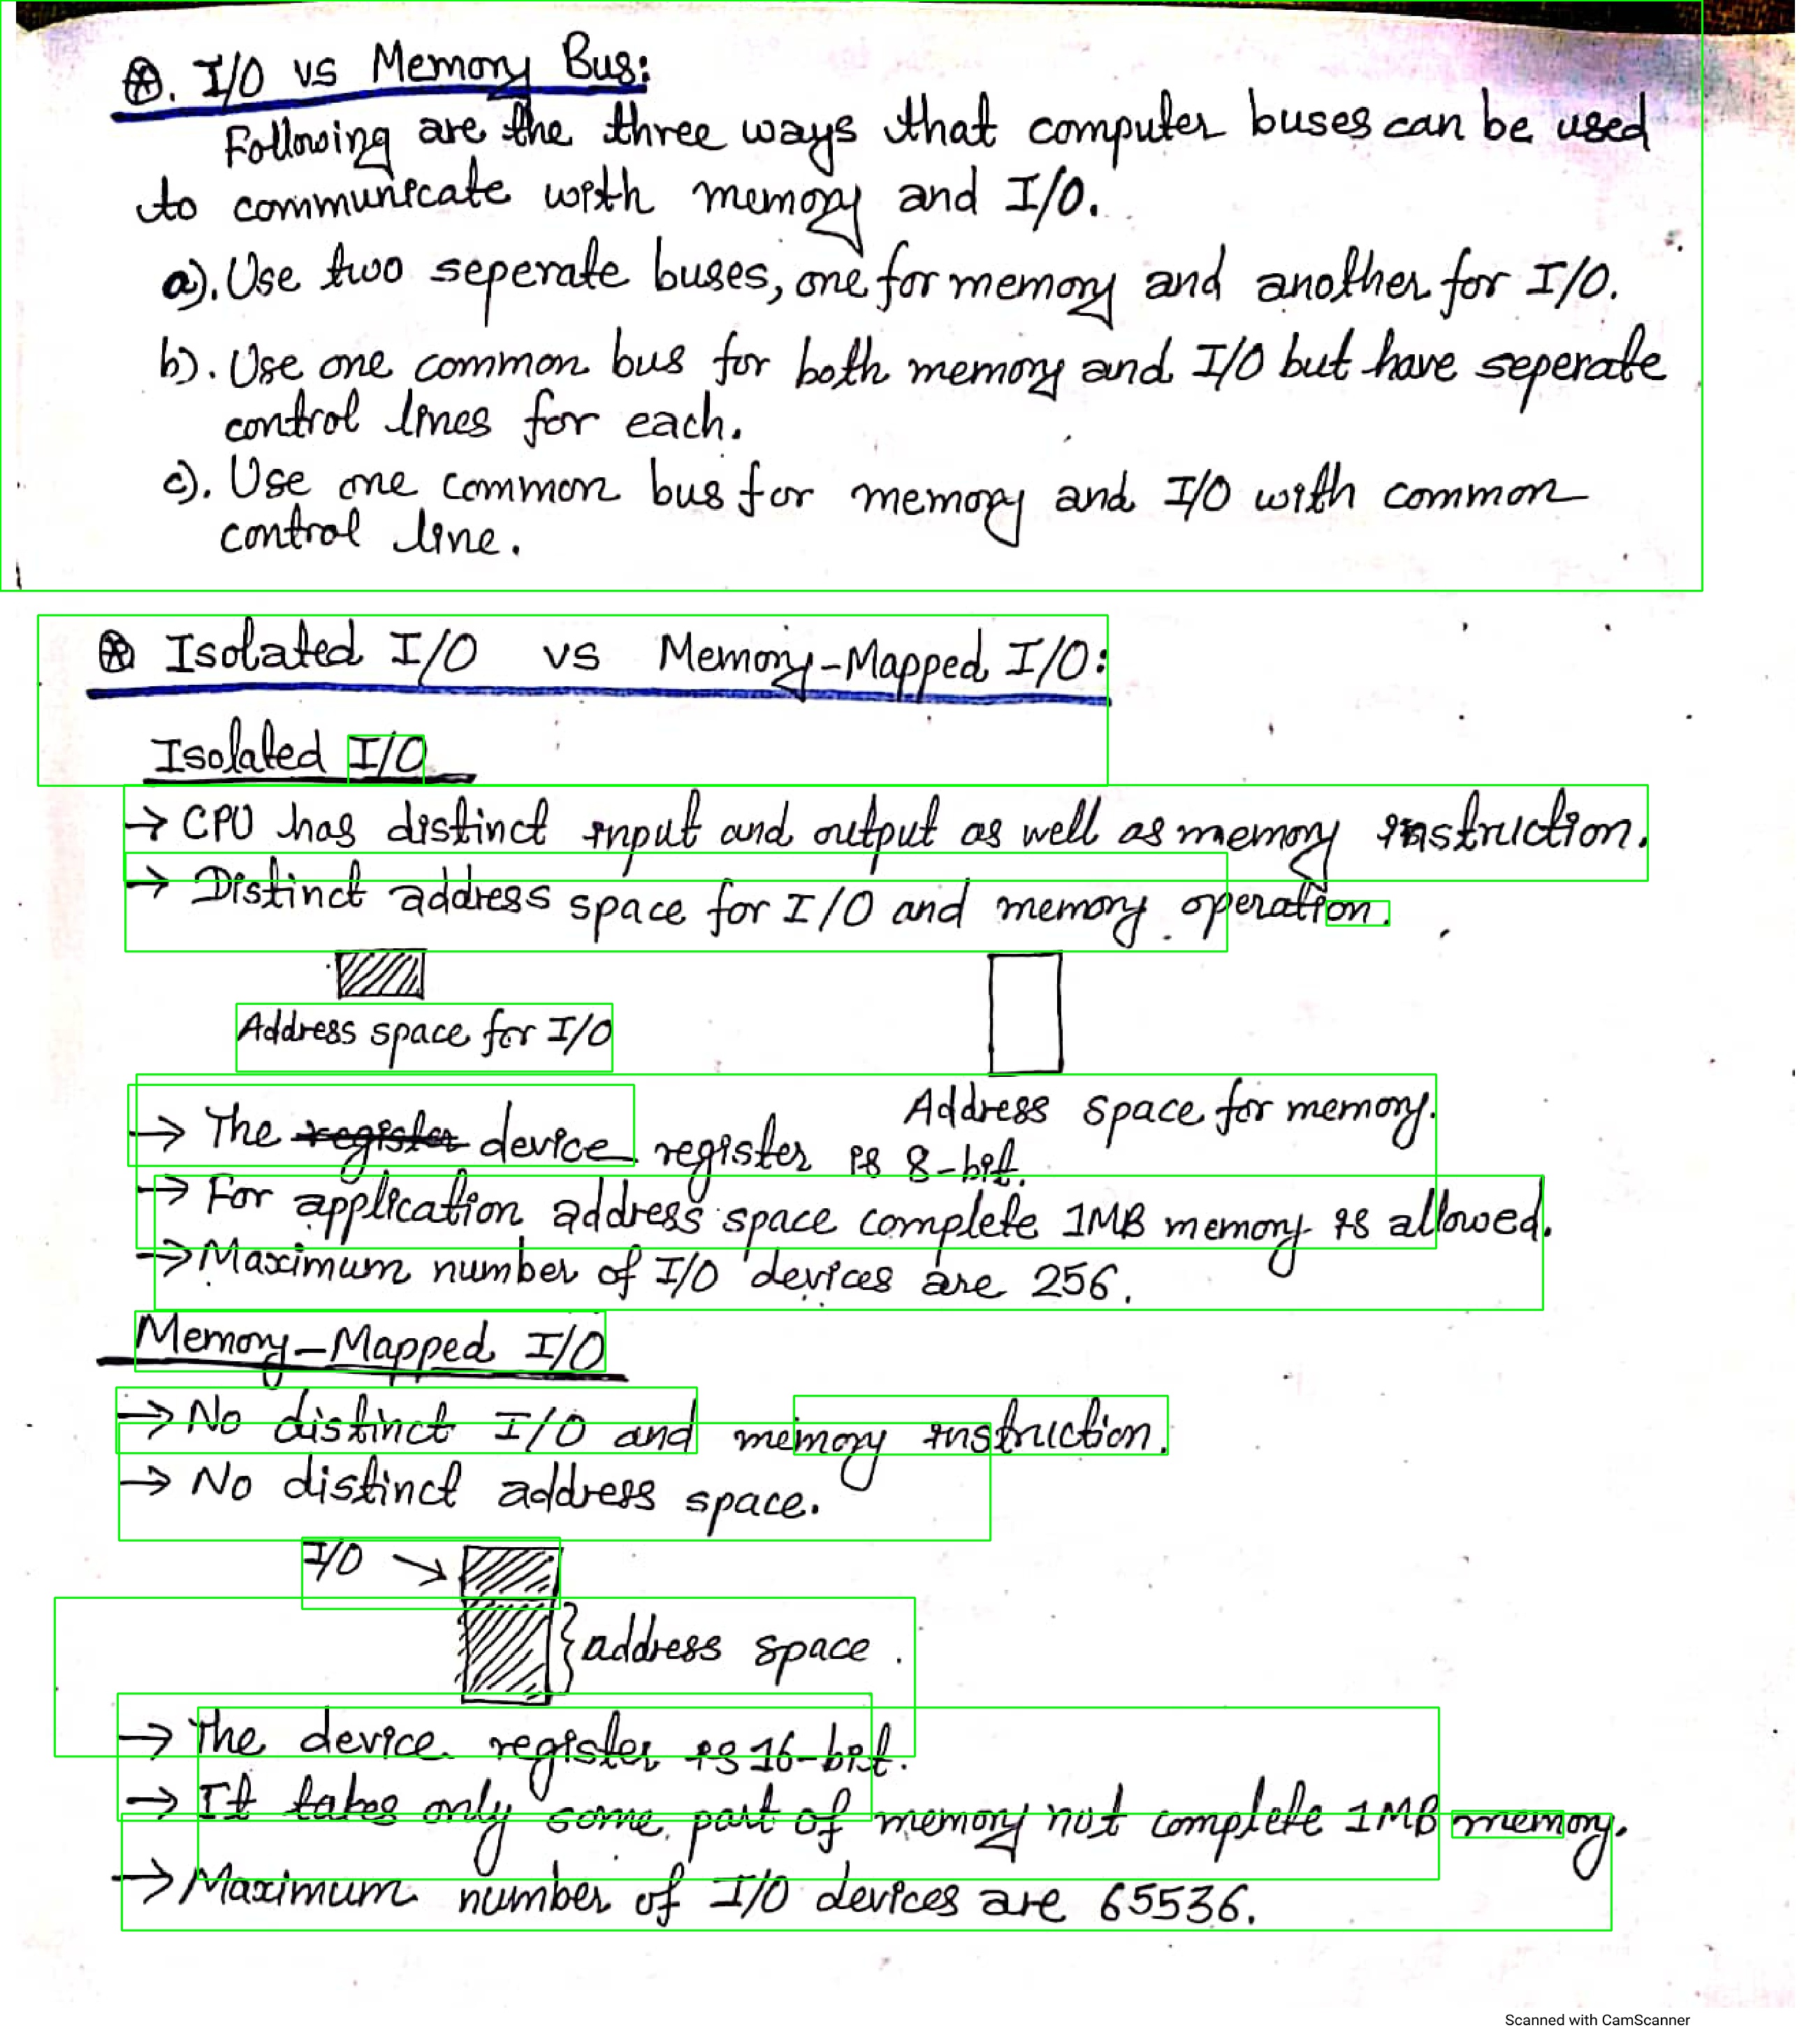 I/O vs Memory Bus:
Following are the three ways that computer buses can be used
to communicate with memory and I/O.
a). Use two seperate buses, one for memory and another for I/O.
b). Use one common bus for both memory and I/O but have seperate
control lines for each.
c). Use one common bus for memory and I/O with common
control line.
Isolated I/O vs Memory-Mapped I/O:
Isolated I/O
→ CPU has distinct input and output as well as memory instruction.
→ Distinct address space for I/O and memory operation.
Address space for I/O
Address space for memory.
→ The register device register is 8-bit.
→ For application address space complete 1MB memory is allowed.
→ Maximum number of I/O devices are 256.
Memory-Mapped I/O
→ No distinct I/O and memory instruction.
→ No distinct address space.
I/O →
} address space.
→ The device register is 16-bit.
→ It takes only some part of memory not complete 1MB memory.
→ Maximum number of I/O devices are 65536.
Scanned with CamScanner